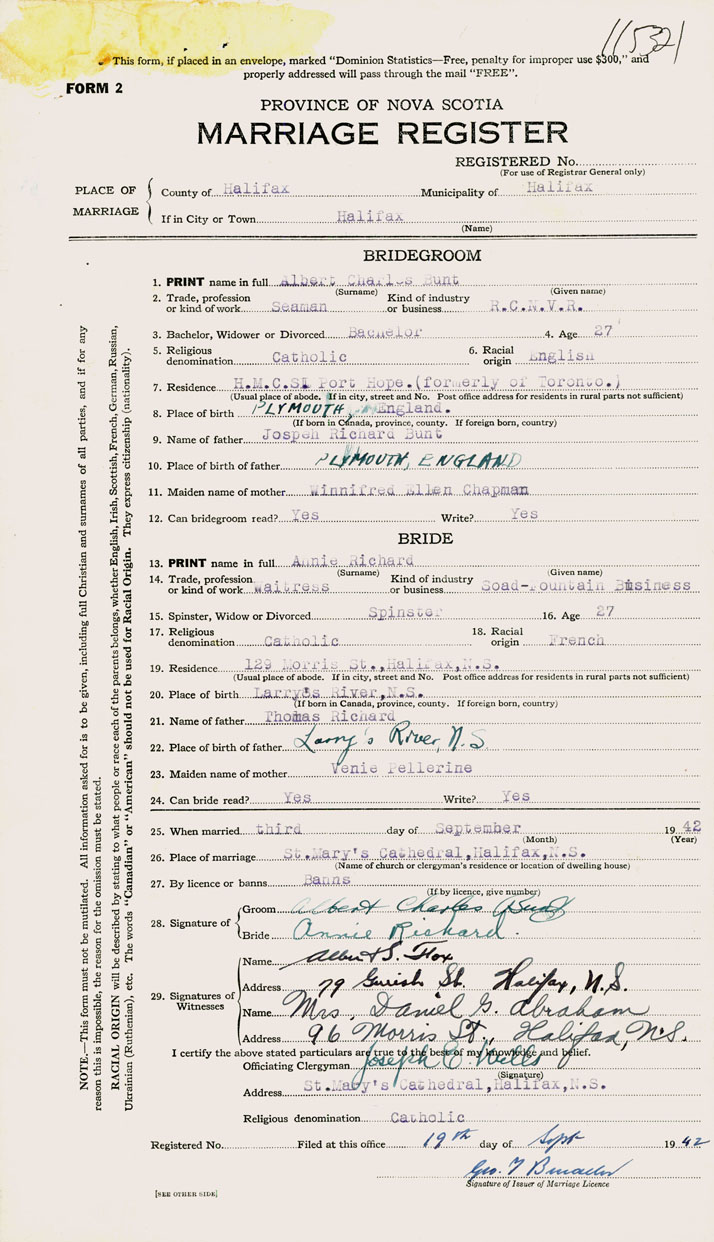 11532
This form, if placed in an envelope, marked “Dominion Statistics—Free, penalty for improper use $300,” and
properly addressed will pass through the mail “FREE”.
FORM 2
PROVINCE OF NOVA SCOTIA
MARRIAGE REGISTER
REGISTERED No.
(For use of Registrar General only)
PLACE OF MARRIAGE
County of Halifax Municipality of Halifax
If in City or Town Halifax
(Name)
BRIDEGROOM
1. PRINT name in full Albert Charles Bunt
(Surname) (Given name)
2. Trade, profession or kind of work Seaman Kind of industry or business R.C.N.V.R.
3. Bachelor, Widower or Divorced Bachelor 4. Age 27
5. Religious denomination Catholic 6. Racial origin English
7. Residence H.M.C.S. Port Hope.(formerly of Toronto.)
(Usual place of abode. If in city, street and No. Post office address for residents in rural parts not sufficient)
8. Place of birth PLYMOUTH, England.
(If born in Canada, province, county. If foreign born, country)
9. Name of father Jospeh Richard Bunt
10. Place of birth of father PLYMOUTH, ENGLAND
11. Maiden name of mother Winnifred Ellen Chapman
12. Can bridegroom read? Yes Write? Yes
BRIDE
13. PRINT name in full Annie Richard
(Surname) (Given name)
14. Trade, profession or kind of work Waitress Kind of industry or business Soad-Fountain Business
15. Spinster, Widow or Divorced Spinster 16. Age 27
17. Religious denomination Catholic 18. Racial origin French
19. Residence 129 Morris St.,Halifax,N.S.
(Usual place of abode. If in city, street and No. Post office address for residents in rural parts not sufficient)
20. Place of birth Larry's River,N.S.
(If born in Canada, province, county. If foreign born, country)
21. Name of father Thomas Richard
22. Place of birth of father Larry's River, N.S.
23. Maiden name of mother Venie Pellerine
24. Can bride read? Yes Write? Yes
25. When married third day of September 1942
(Month) (Year)
26. Place of marriage St.Mary's Cathedral,Halifax,N.S.
(Name of church or clergyman's residence or location of dwelling house)
27. By licence or banns Banns
(If by licence, give number)
28. Signature of
Groom Albert Charles Bunt
Bride Annie Richard.
29. Signatures of Witnesses
Name Albert S. Fox
Address 79 St. Halifax, N.S.
Name Mrs. Daniel G. Abraham
Address 96 Morris St., Halifax, N.S.
I certify the above stated particulars are true to the best of my knowledge and belief.
Officiating Clergyman Joseph E. Wells
(Signature)
Address St.Mary's Cathedral,Halifax,N.S.
Religious denomination Catholic
Registered No. Filed at this office 19th day of Sept 1942
Geo. T
Signature of Issuer of Marriage Licence
[SEE OTHER SIDE]
NOTE.—This form must not be mutilated. All information asked for is to be given, including full Christian and surnames of all parties, and if for any
reason this is impossible, the reason for the omission must be stated.
RACIAL ORIGIN will be described by stating to what people or race each of the parents belongs, whether English, Irish, Scottish, French, German, Russian,
Ukrainian (Ruthenian), etc. The words “Canadian” or “American” should not be used for Racial Origin. They express citizenship (nationality).